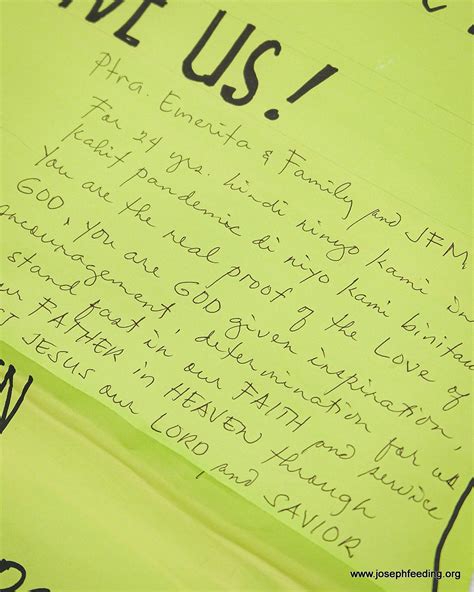 VE US!
Ptra. Emerita & Family and JFM
For 24 yrs. hindi ninyo kami in
kahit pandemic di niyo kami binitaw
You are the real proof of the Love of
GOD, You are GOD given inspiration,
encouragement, determination for us
stand fast in our FAITH and service
our FATHER in HEAVEN through
ST JESUS our LORD and SAVIOR
EN
www.josephfeeding.org